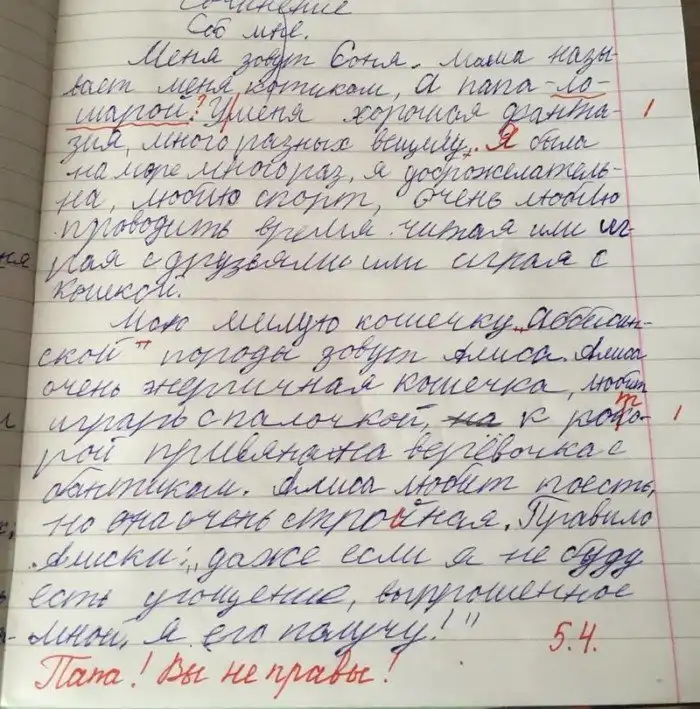 Сочинение
Соб мне.
Меня зовут Соня. Мама назы-
вает меня котиком, а папа-ло-
шарой? У меня хорошая фанта-
зия, много разных вещиц. Я была
на море много раз, я доброжелатель-
на, люблю спорт, очень люблю
проводить время читая или иг-
рая с друзьями или играя с
кошкой.
Мою милую кошечку „аббисин-
ской" породы зовут Алиса. Алиса
очень энергичная кошечка, любит
играть с палочкой, на к кото-
рой привянана верёвочка с
бантиком. Алиса любит поесть,
но она очень стройная. Правило
Алиски: „даже если я не буду
есть угощение, выпрошенное
мной, я его получу!"
5.4.
Папа! Вы не правы!
1
1